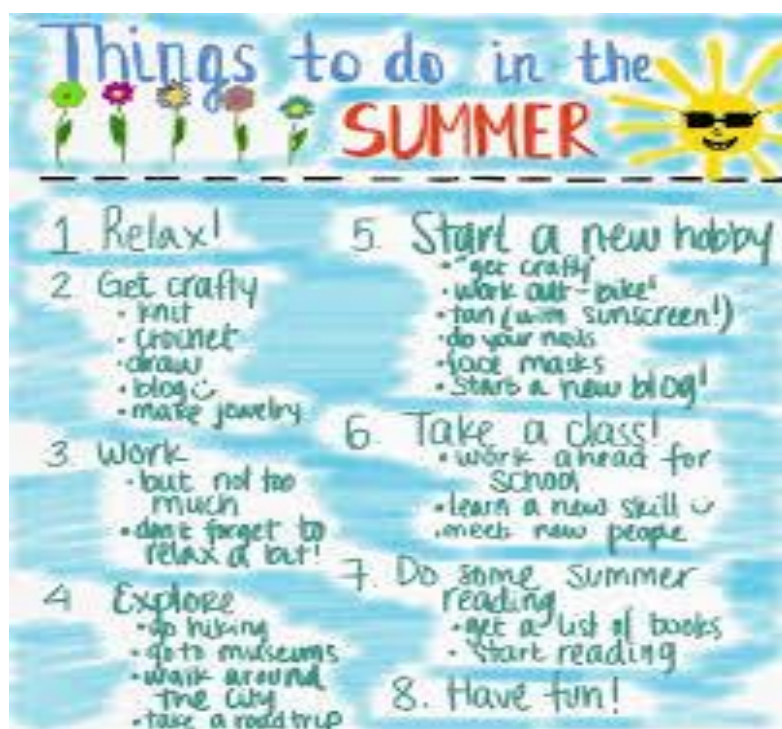 Things to do in the
SUMMER
1 Relax!
2 Get crafty
• knit
• crochet
• draw
• blog
• make jewelry
3 Work
• but not too
much
• don't forget to
relax a bit!
4 Explore
• go hiking
• go to museums
• walk around
the city
• take a road trip
5. Start a new hobby
• "get crafty"
• work out - bike!
• tan (with sunscreen!)
• do your nails
• face masks
• start a new blog!
6 Take a class!
• work ahead for
school
• learn a new skill
• meet new people
7. Do some summer
reading
• get a list of books
• start reading
8. Have fun!